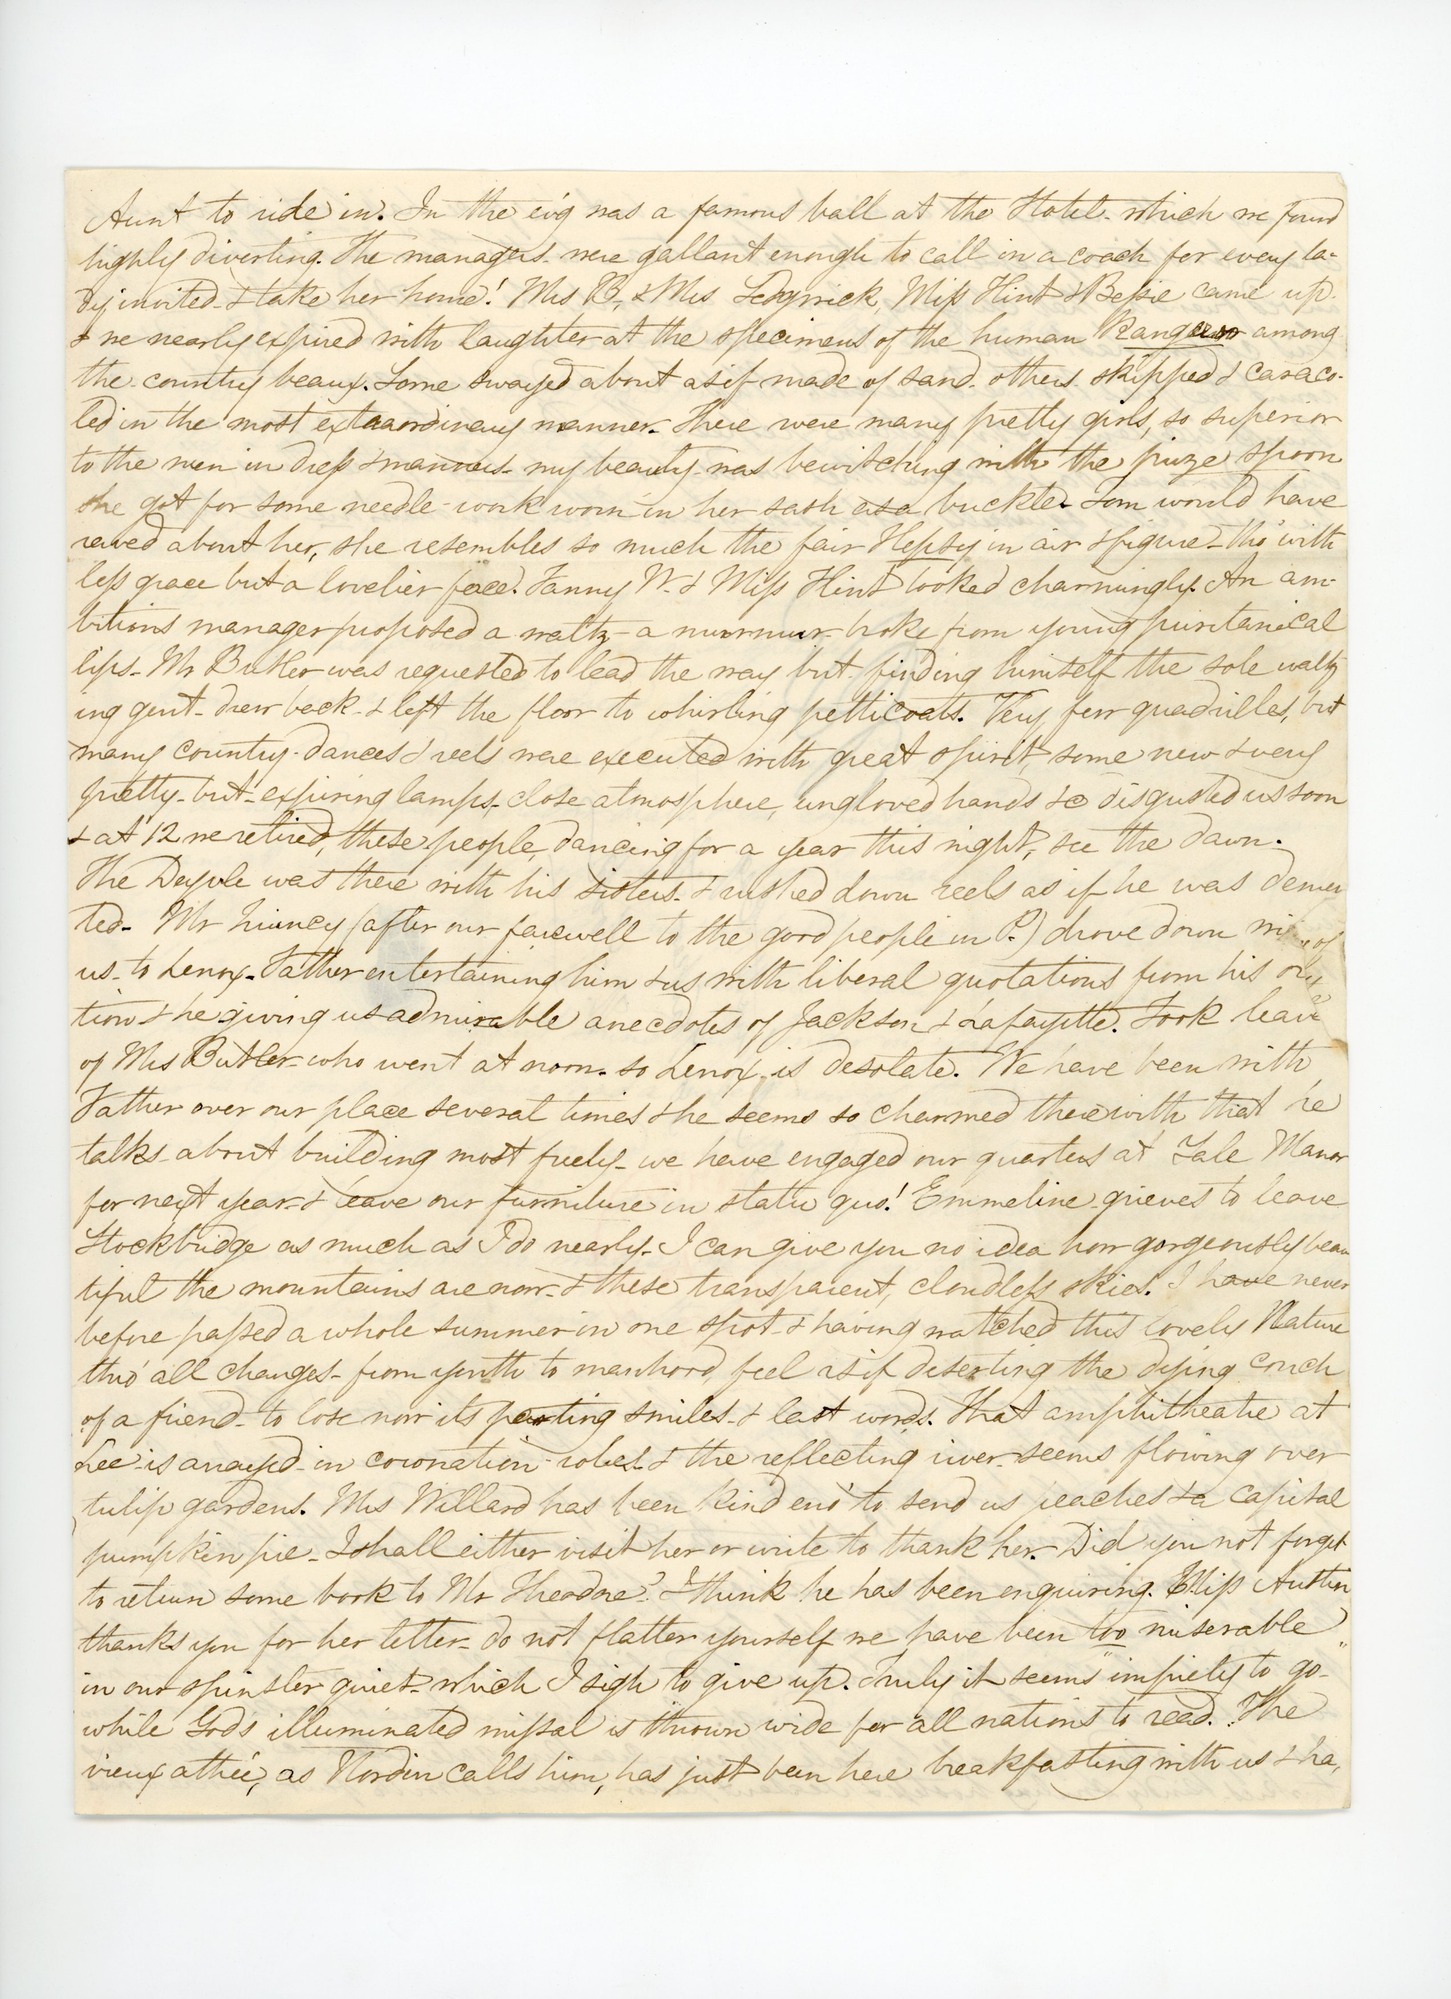 Aunt to ride in. In the ev'g was a famous ball at the Hotel - which we found
highly diverting. The managers were gallant enough to call in a coach for every la-
dy invited & take her home! Mrs B, & Mrs Sedgwick, Miss Flint & Bessie came up
& we nearly expired with laughter at the specimens of the human Kangaroo among
the country beaux. Some swayed about as if made of sand - others skipped & caraco-
led in the most extraordinary manner. There were many pretty girls, so superior
to the men in dress & manners - my beauty was bewitching with the prize spoon
she got for some needle-work worn in her sash as a buckle. Tom would have
raved about her, she resembles so much the fair Hepsy in air & figure - tho' with
less grace but a lovelier face. Fanny W. & Miss Flint looked charmingly. An am-
bitious manager proposed a waltz - a murmur broke from young puritanical
lips - Mr Butler was requested to lead the way but finding himself the sole waltz
ing gent - drew back - & left the floor to whirling petticoats. Very few quadrilles, but
many country-dances & reels were executed with great spirit, some new & very
pretty - but - expiring lamps, close atmosphere, ungloved hands &c disgusted us soon
& at 12 we retired, these people, dancing for a year this night, see the dawn.
The was there with his sisters - & rushed down reels as if he was demen
ted - Mr Quincy (after our farewell to the good people in P.) drove down of
us - to Lenox - Father entertaining him & us with liberal quotations from his
tion & he giving us admirable anecdotes of Jackson & Lafayette. Took leave
of Mrs Butler - who went at noon - so Lenox is desolate. We have been with
Father over our place several times & he seems so charmed therewith that he
talks about building most freely - we have engaged our quarters at Manor
for next year - & leave our furniture in statu quo! Emmeline grieves to leave
Stockbridge as much as I do nearly - I can give you no idea how gorgeously beau
tiful the mountains are now - & these transparent, cloudless skies! I have never
before passed a whole summer in one spot - & having watched this lovely Nature
thro' all changes - from youth to manhood, feel as if deserting the dying couch
of a friend - to lose now its parting smiles - & last words. That amphitheatre at
Lee - is arrayed in coronation-robes - & the reflecting river - seems flowing over
tulip gardens. Mrs Willard has been kind eno' to send us peaches & a capital
pumpkin pie - I shall either visit her or write to thank her. Did you not forget
to return some book to Mr Theodore? I think he has been enquiring. Miss Austin
thanks you for her letter - do not flatter yourself we have been too miserable
in our spinster quiet - which I sigh to give up. Truly it seems "impiety to go"
while God's illuminated missal is thrown wide for all nations to read. The
vieux athée, as Nordin calls him, has just been here breakfasting with us & ha,